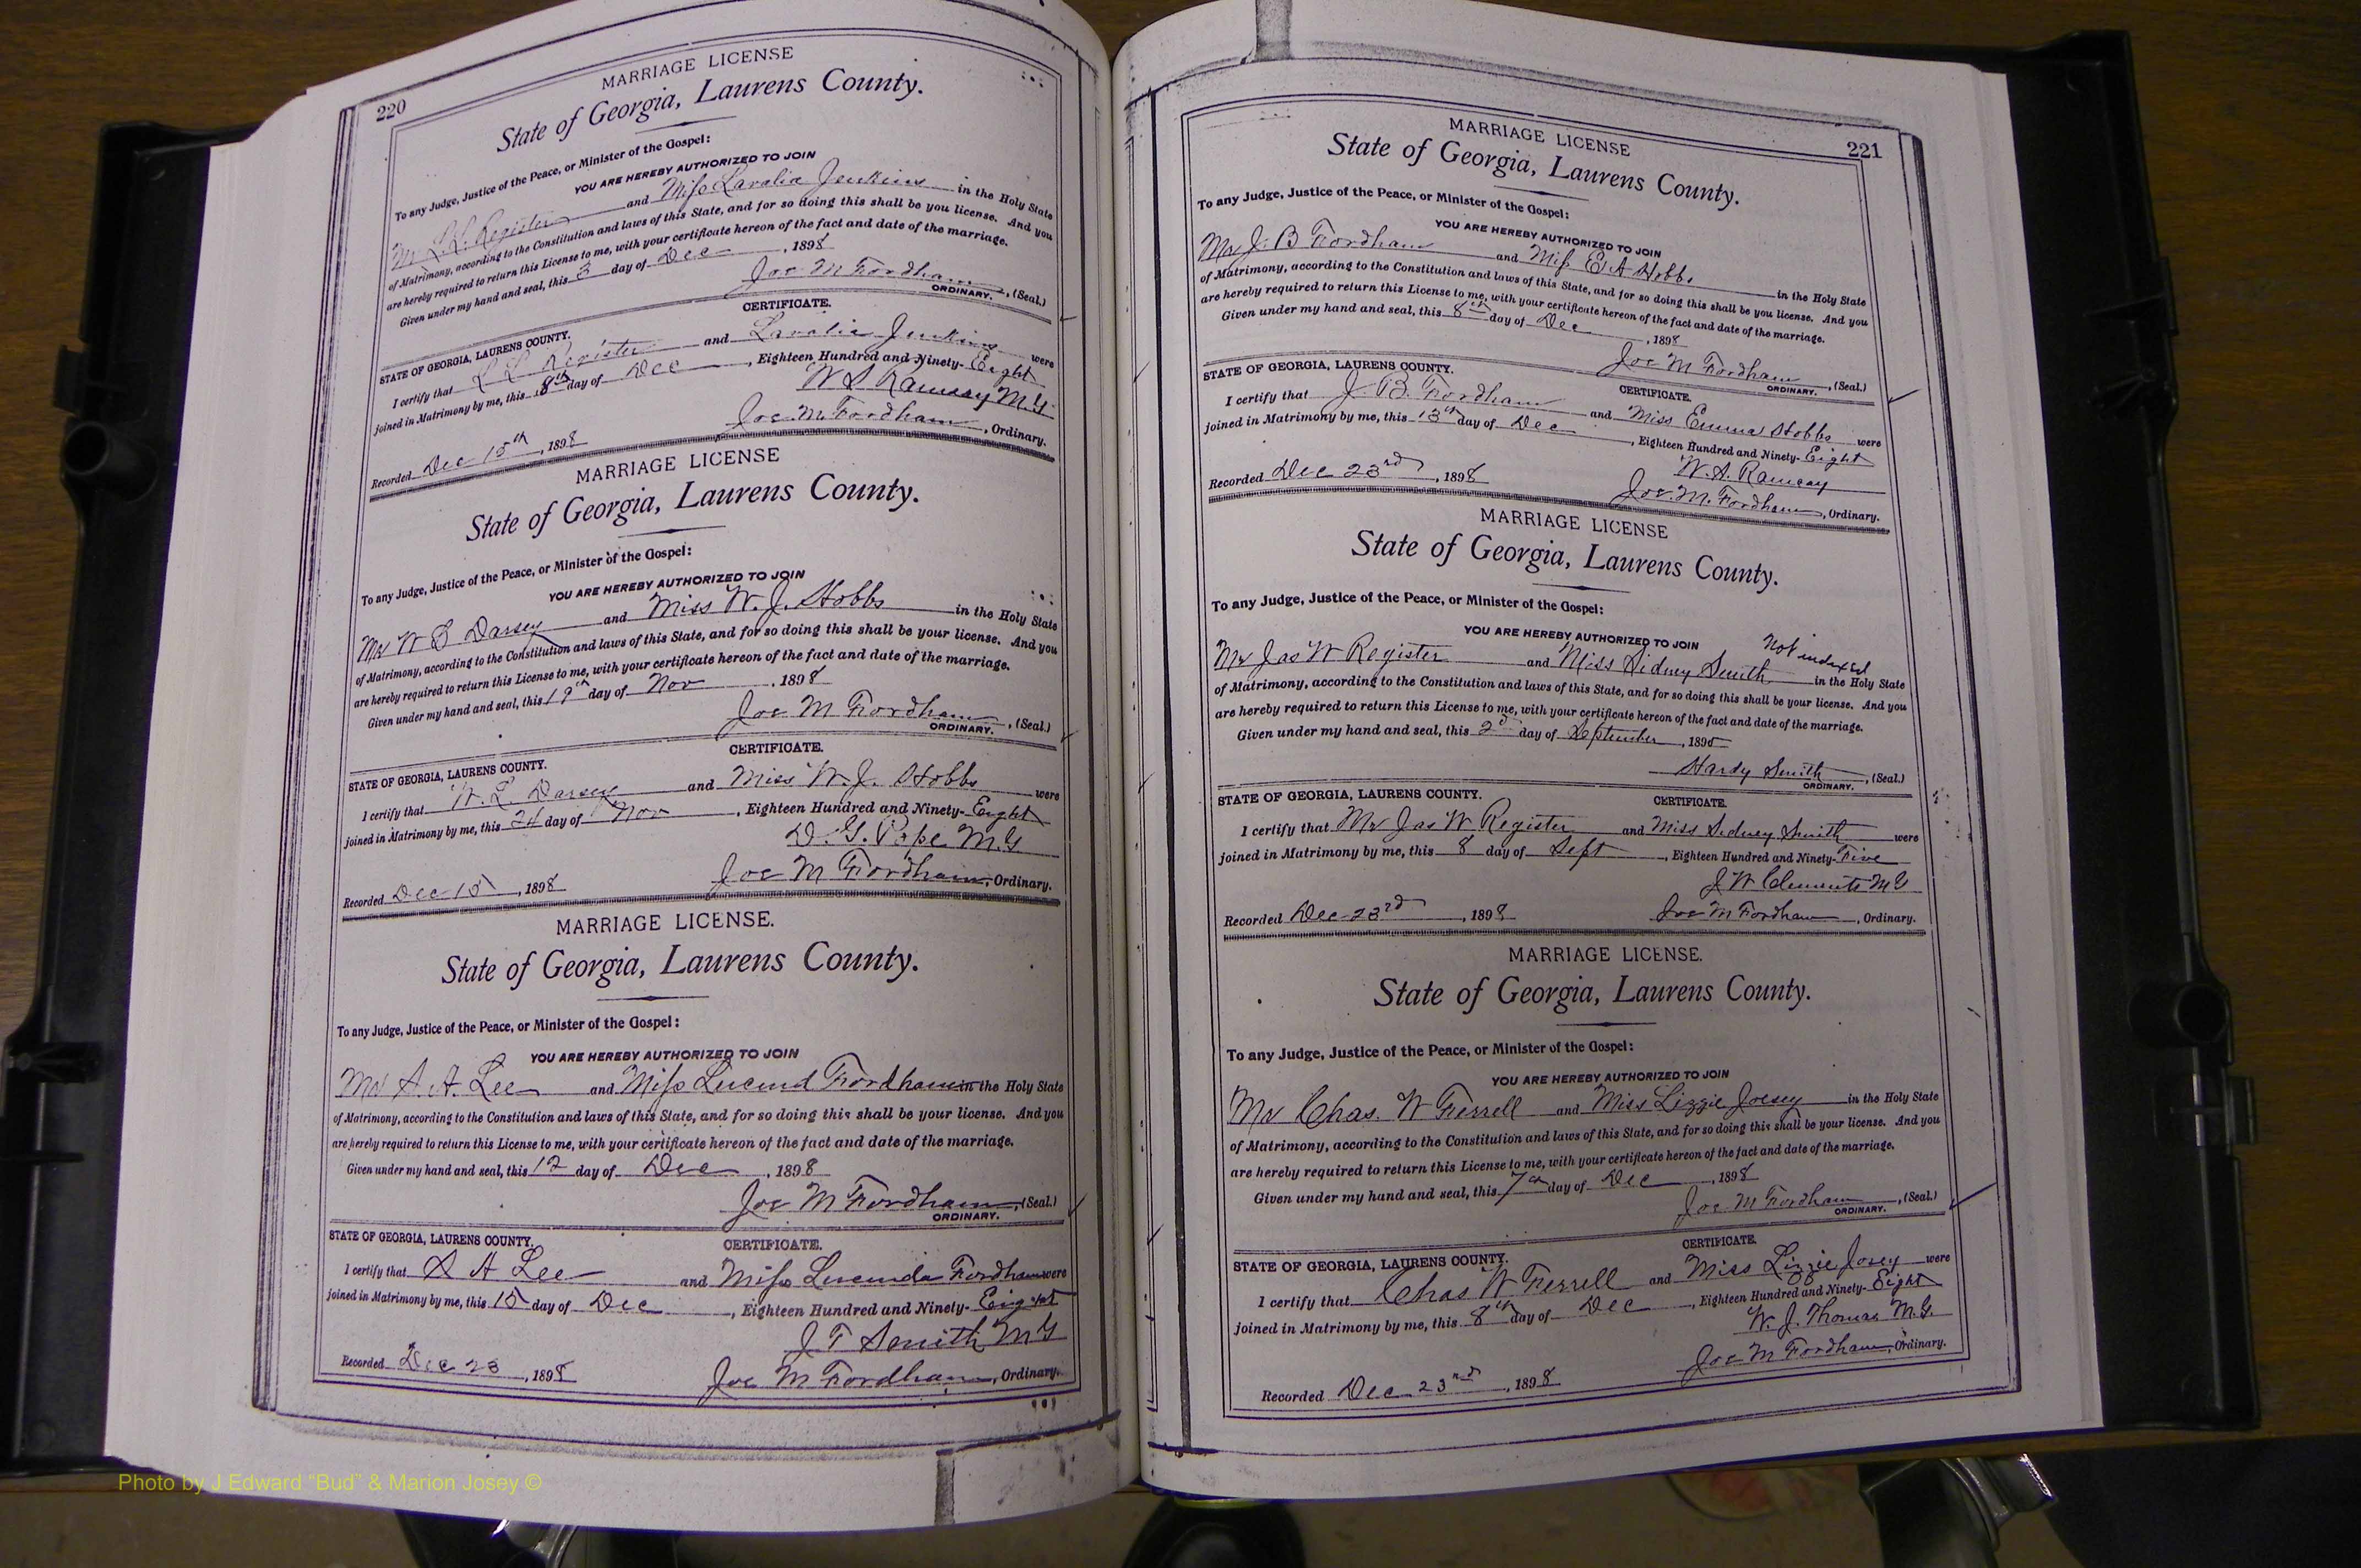 220
MARRIAGE LICENSE
State of Georgia, Laurens County.
To any Judge, Justice of the Peace, or Minister of the Gospel:
YOU ARE HEREBY AUTHORIZED TO JOIN
Mr L.L. Register and Miss Lavalia Jenkins in the Holy State
of Matrimony, according to the Constitution and laws of this State, and for so doing this shall be you license. And you
are hereby required to return this License to me, with your certificate hereon of the fact and date of the marriage.
Given under my hand and seal, this 3 day of Dec , 1898
Joe M Fordham, (Seal.)
ORDINARY.
CERTIFICATE.
STATE OF GEORGIA, LAURENS COUNTY.
I certify that L L Register and Lavalia Jenkins were
joined in Matrimony by me, this 8th day of Dec , Eighteen Hundred and Ninety- Eight
W S Ramsay M.G.
Joe M Fordham , Ordinary.
Recorded Dec 15th , 1898
MARRIAGE LICENSE
State of Georgia, Laurens County.
To any Judge, Justice of the Peace, or Minister of the Gospel:
YOU ARE HEREBY AUTHORIZED TO JOIN
Mr W S Darsey and Miss W. J. Hobbs in the Holy State
of Matrimony, according to the Constitution and laws of this State, and for so doing this shall be your license. And you
are hereby required to return this License to me, with your certificate hereon of the fact and date of the marriage.
Given under my hand and seal, this 19th day of Nov , 1898
Joe M Fordham , (Seal.)
ORDINARY.
CERTIFICATE.
STATE OF GEORGIA, LAURENS COUNTY.
I certify that W. L. Darsey and Miss W. J. Hobbs were
joined in Matrimony by me, this 24 day of Nov , Eighteen Hundred and Ninety- Eight
D. G. Pope M.G.
Joe M Fordham, Ordinary.
Recorded Dec 15 , 1898
MARRIAGE LICENSE.
State of Georgia, Laurens County.
To any Judge, Justice of the Peace, or Minister of the Gospel:
YOU ARE HEREBY AUTHORIZED TO JOIN
Mr A. A. Lee and Miss Lucind Fordham in the Holy State
of Matrimony, according to the Constitution and laws of this State, and for so doing this shall be your license. And you
are hereby required to return this License to me, with your certificate hereon of the fact and date of the marriage.
Given under my hand and seal, this 12 day of Dec , 1898
Joe M Fordham , (Seal.)
ORDINARY.
STATE OF GEORGIA, LAURENS COUNTY.
CERTIFICATE.
I certify that S A Lee and Miss Lucinda Fordham were
joined in Matrimony by me, this 15 day of Dec , Eighteen Hundred and Ninety- Eight
J T Smith M G
Recorded Dec 23 , 1898
Joe M Fordham , Ordinary.
221
MARRIAGE LICENSE
State of Georgia, Laurens County.
To any Judge, Justice of the Peace, or Minister of the Gospel:
YOU ARE HEREBY AUTHORIZED TO JOIN
Mr J. B Fordham and Miss E A Hobbs in the Holy State
of Matrimony, according to the Constitution and laws of this State, and for so doing this shall be you license. And you
are hereby required to return this License to me, with your certificate hereon of the fact and date of the marriage.
Given under my hand and seal, this 8th day of Dec , 1898
Joe M Fordham , (Seal.)
ORDINARY.
STATE OF GEORGIA, LAURENS COUNTY.
CERTIFICATE.
I certify that J. B. Fordham and Miss Emma Hobbs were
joined in Matrimony by me, this 13th day of Dec , Eighteen Hundred and Ninety- Eight
W. S. Ramsay
Recorded Dec 23rd , 1898
Joe. M. Fordham , Ordinary.
MARRIAGE LICENSE
State of Georgia, Laurens County.
To any Judge, Justice of the Peace, or Minister of the Gospel:
YOU ARE HEREBY AUTHORIZED TO JOIN
Not indexed
Mr Jas W Register and Miss Sidney Smith in the Holy State
of Matrimony, according to the Constitution and laws of this State, and for so doing this shall be your license. And you
are hereby required to return this License to me, with your certificate hereon of the fact and date of the marriage.
Given under my hand and seal, this 2d day of September , 1895
Hardy Smith , (Seal.)
ORDINARY.
STATE OF GEORGIA, LAURENS COUNTY.
CERTIFICATE.
I certify that Mr Jas W Register and Miss Sidney Smith were
joined in Matrimony by me, this 8 day of Sept , Eighteen Hundred and Ninety- Five
J W Clements M G
Recorded Dec 23rd , 1898
Joe M Fordham , Ordinary.
MARRIAGE LICENSE.
State of Georgia, Laurens County.
To any Judge, Justice of the Peace, or Minister of the Gospel:
YOU ARE HEREBY AUTHORIZED TO JOIN
Mr Chas. W Ferrell and Miss Lizzie Joesey in the Holy State
of Matrimony, according to the Constitution and laws of this State, and for so doing this shall be your license. And you
are hereby required to return this License to me, with your certificate hereon of the fact and date of the marriage.
Given under my hand and seal, this 7th day of Dec , 1898
Joe M Fordham , (Seal.)
ORDINARY.
CERTIFICATE.
STATE OF GEORGIA, LAURENS COUNTY.
I certify that Chas W Ferrell and Miss Lizzie Josey were
joined in Matrimony by me, this 8th day of Dec , Eighteen Hundred and Ninety- Eight
W. J. Thomas M.G.
Joe M Fordham , Ordinary.
Recorded Dec 23rd , 1898
Photo by J Edward "Bud" & Marion Josey ©